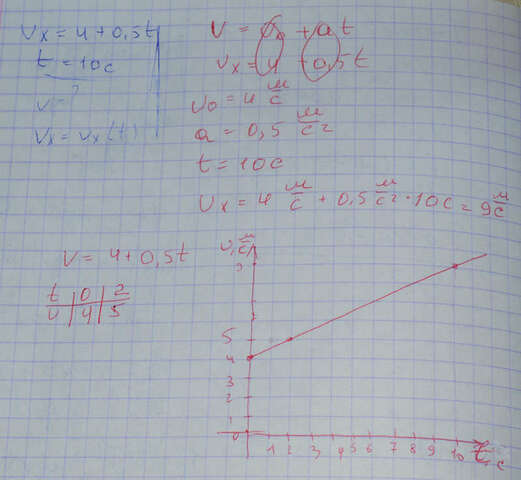 vₓ = 4 + 0,5t
t = 10c
v = ?
vₓ = vₓ(t)
v = v₀ + at
vₓ = 4 + 0,5t
v₀ = 4 м/с
a = 0,5 м/с²
t = 10c
vₓ = 4 м/с + 0,5 м/с² · 10c = 9 м/с
v = 4 + 0,5t
t | 0 | 2
v | 4 | 5
v, м/с
9
5
4
3
2
1
0 1 2 3 4 5 6 7 8 9 10 t, c